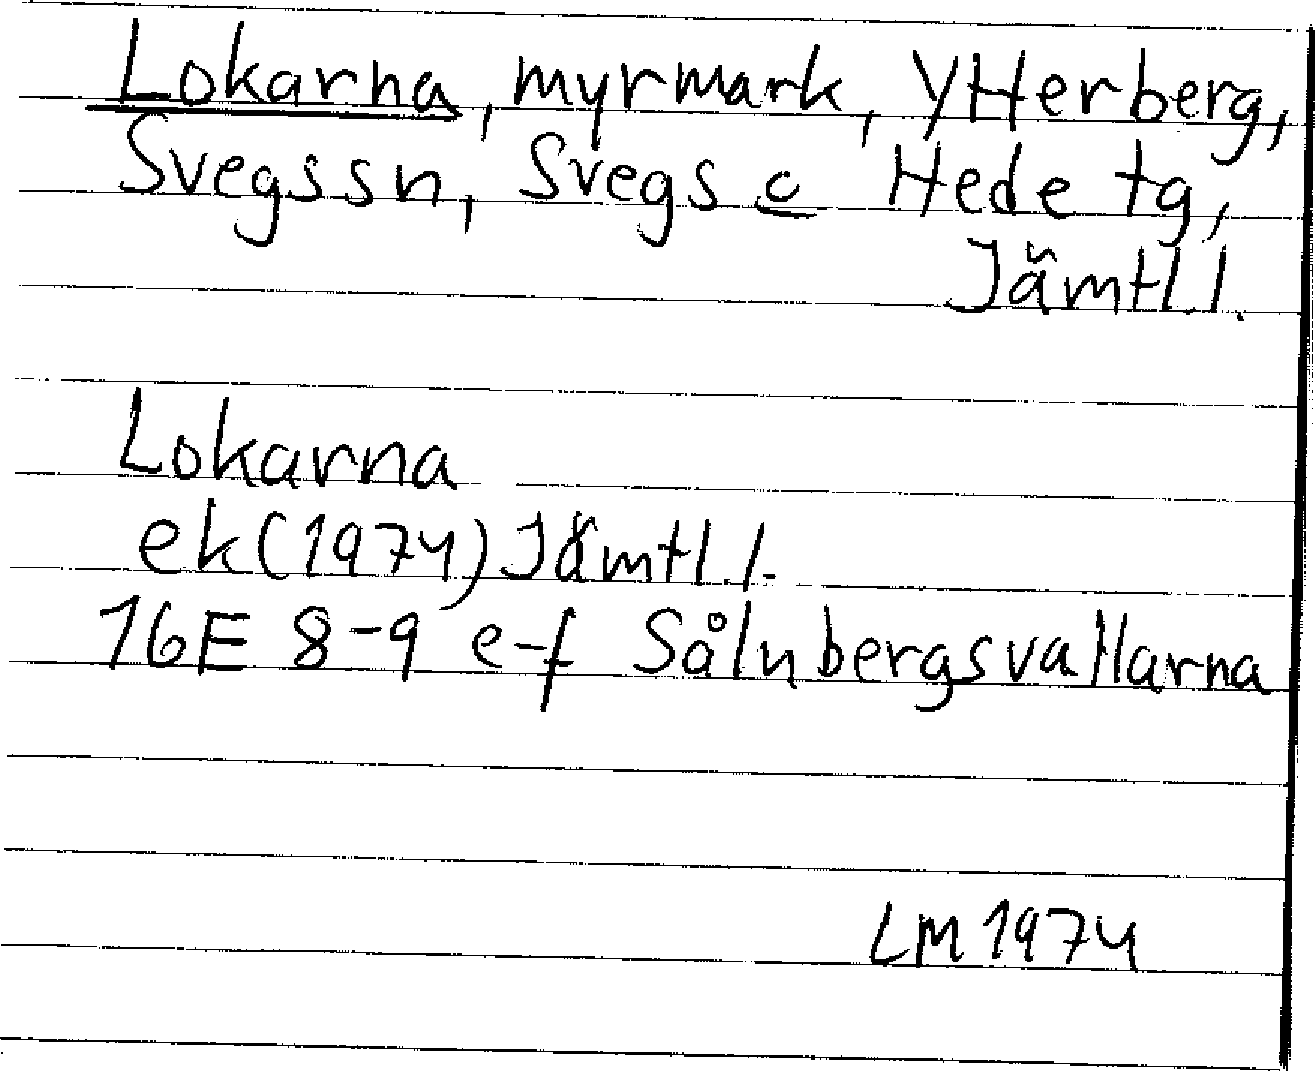 Lokarna, myrmark, Ytterberg,
Svegs sn, Svegs o Hede tg,
Jämtl. l.
Lokarna
ek (1974) Jämtl. l.
16E 8-9 e-f Sålnbergsvallarna
LM 1974